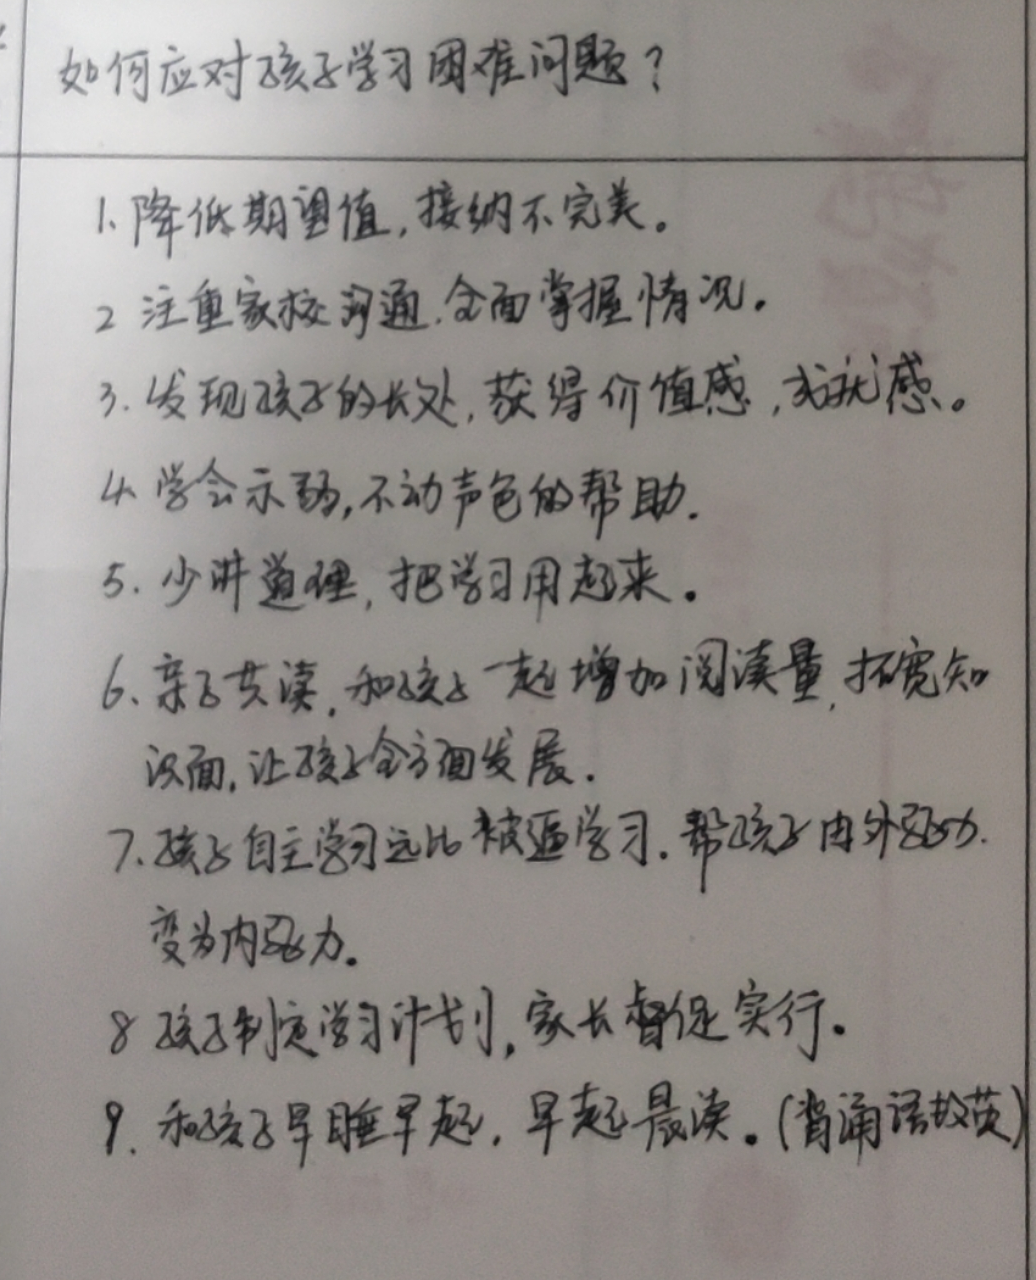 如何应对孩子学习困难问题?
1.降低期望值,接纳不完美。
2 注重家校沟通.全面掌握情况。
3.发现孩子的长处,获得价值感,成就感。
4.学会示弱,不动声色的帮助.
5.少讲道理,把学习用起来。
6.亲子共读,和孩子一起增加阅读量,拓宽知
识面,让孩子全方面发展.
7.孩子自主学习远比被逼学习.帮孩子由外驱力.
变为内驱力。
8 孩子制定学习计划,家长督促实行。
9.和孩子早睡早起.早起晨读。(背诵语数英)